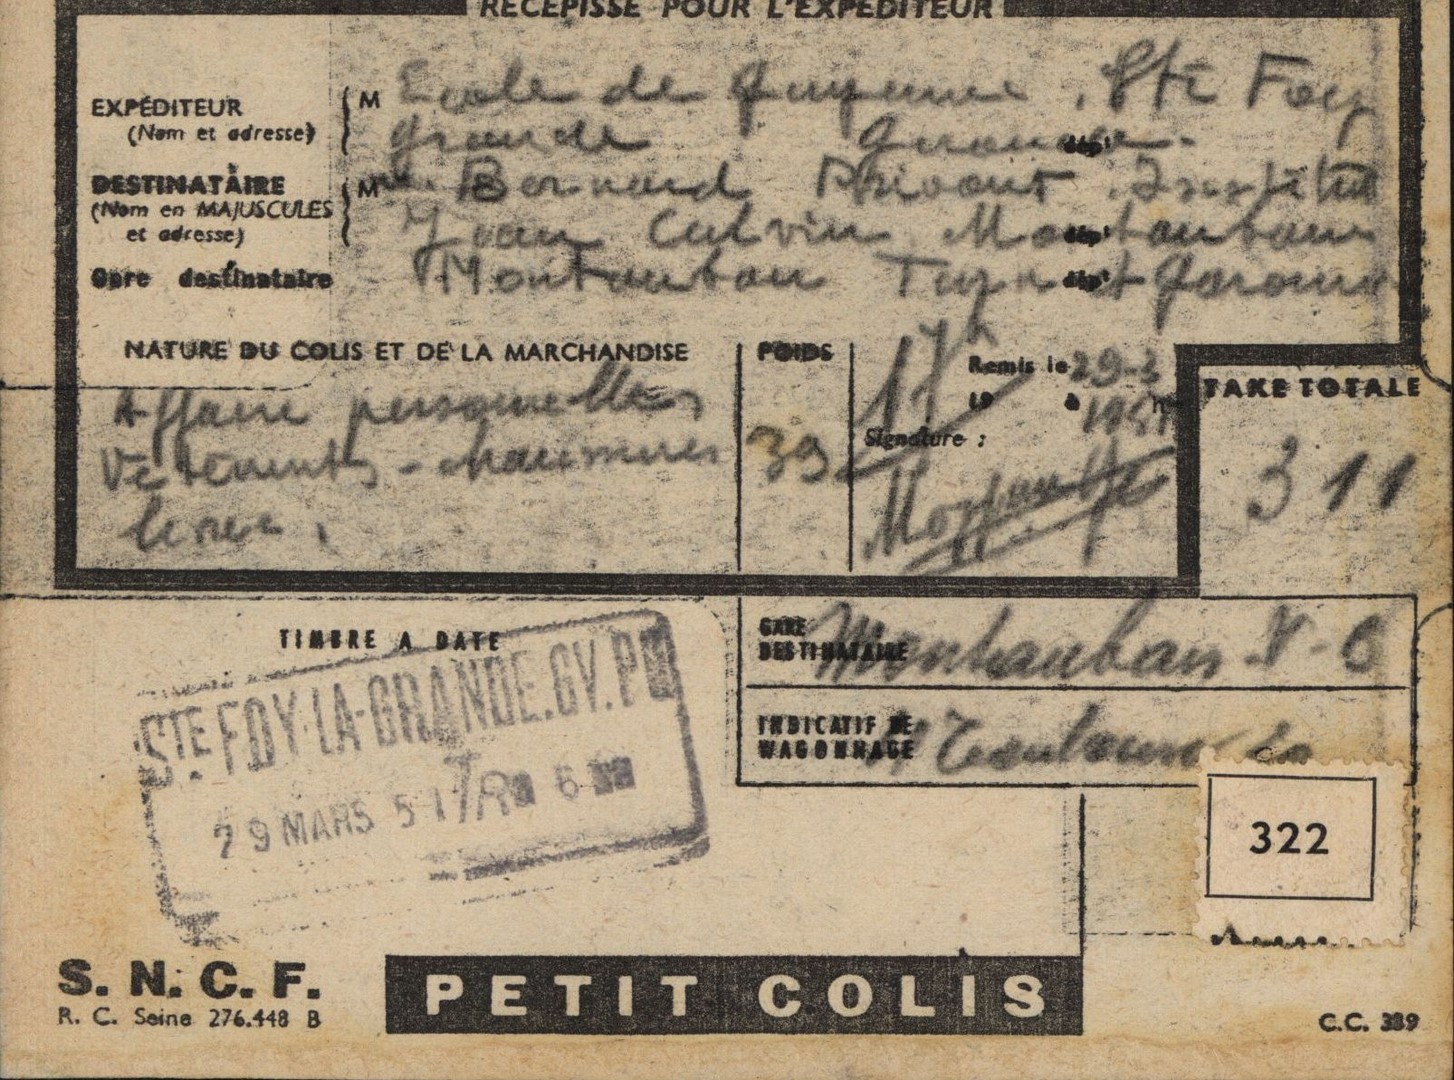 RÉCÉPISSÉ POUR L'EXPÉDITEUR
EXPÉDITEUR
(Nom et adresse)
M Ecole de Guyenne, Ste Foy
grande Gironde dépt
DESTINATAIRE
(Nom en MAJUSCULES
et adresse)
M Bernard Institut
Jean Calvin Montauban dépt
Gare destinataire
Montauban Tarn et Garonne dépt
NATURE DU COLIS ET DE LA MARCHANDISE
Affaire personnelles
Vetements - chaussures
POIDS
39
17h
Remis le 29-3
19 1951 à h
Signature :
TAXE TOTALE
311
TIMBRE A DATE
STE FOY-LA-GRANDE.GV.PV
29 MARS 51
GARE
DESTINATAIRE
Montauban V-B
INDICATIF DE
WAGONNAGE
Toulouse
322
S. N. C. F.
R. C. Seine 276.448 B
PETIT COLIS
C.C. 339